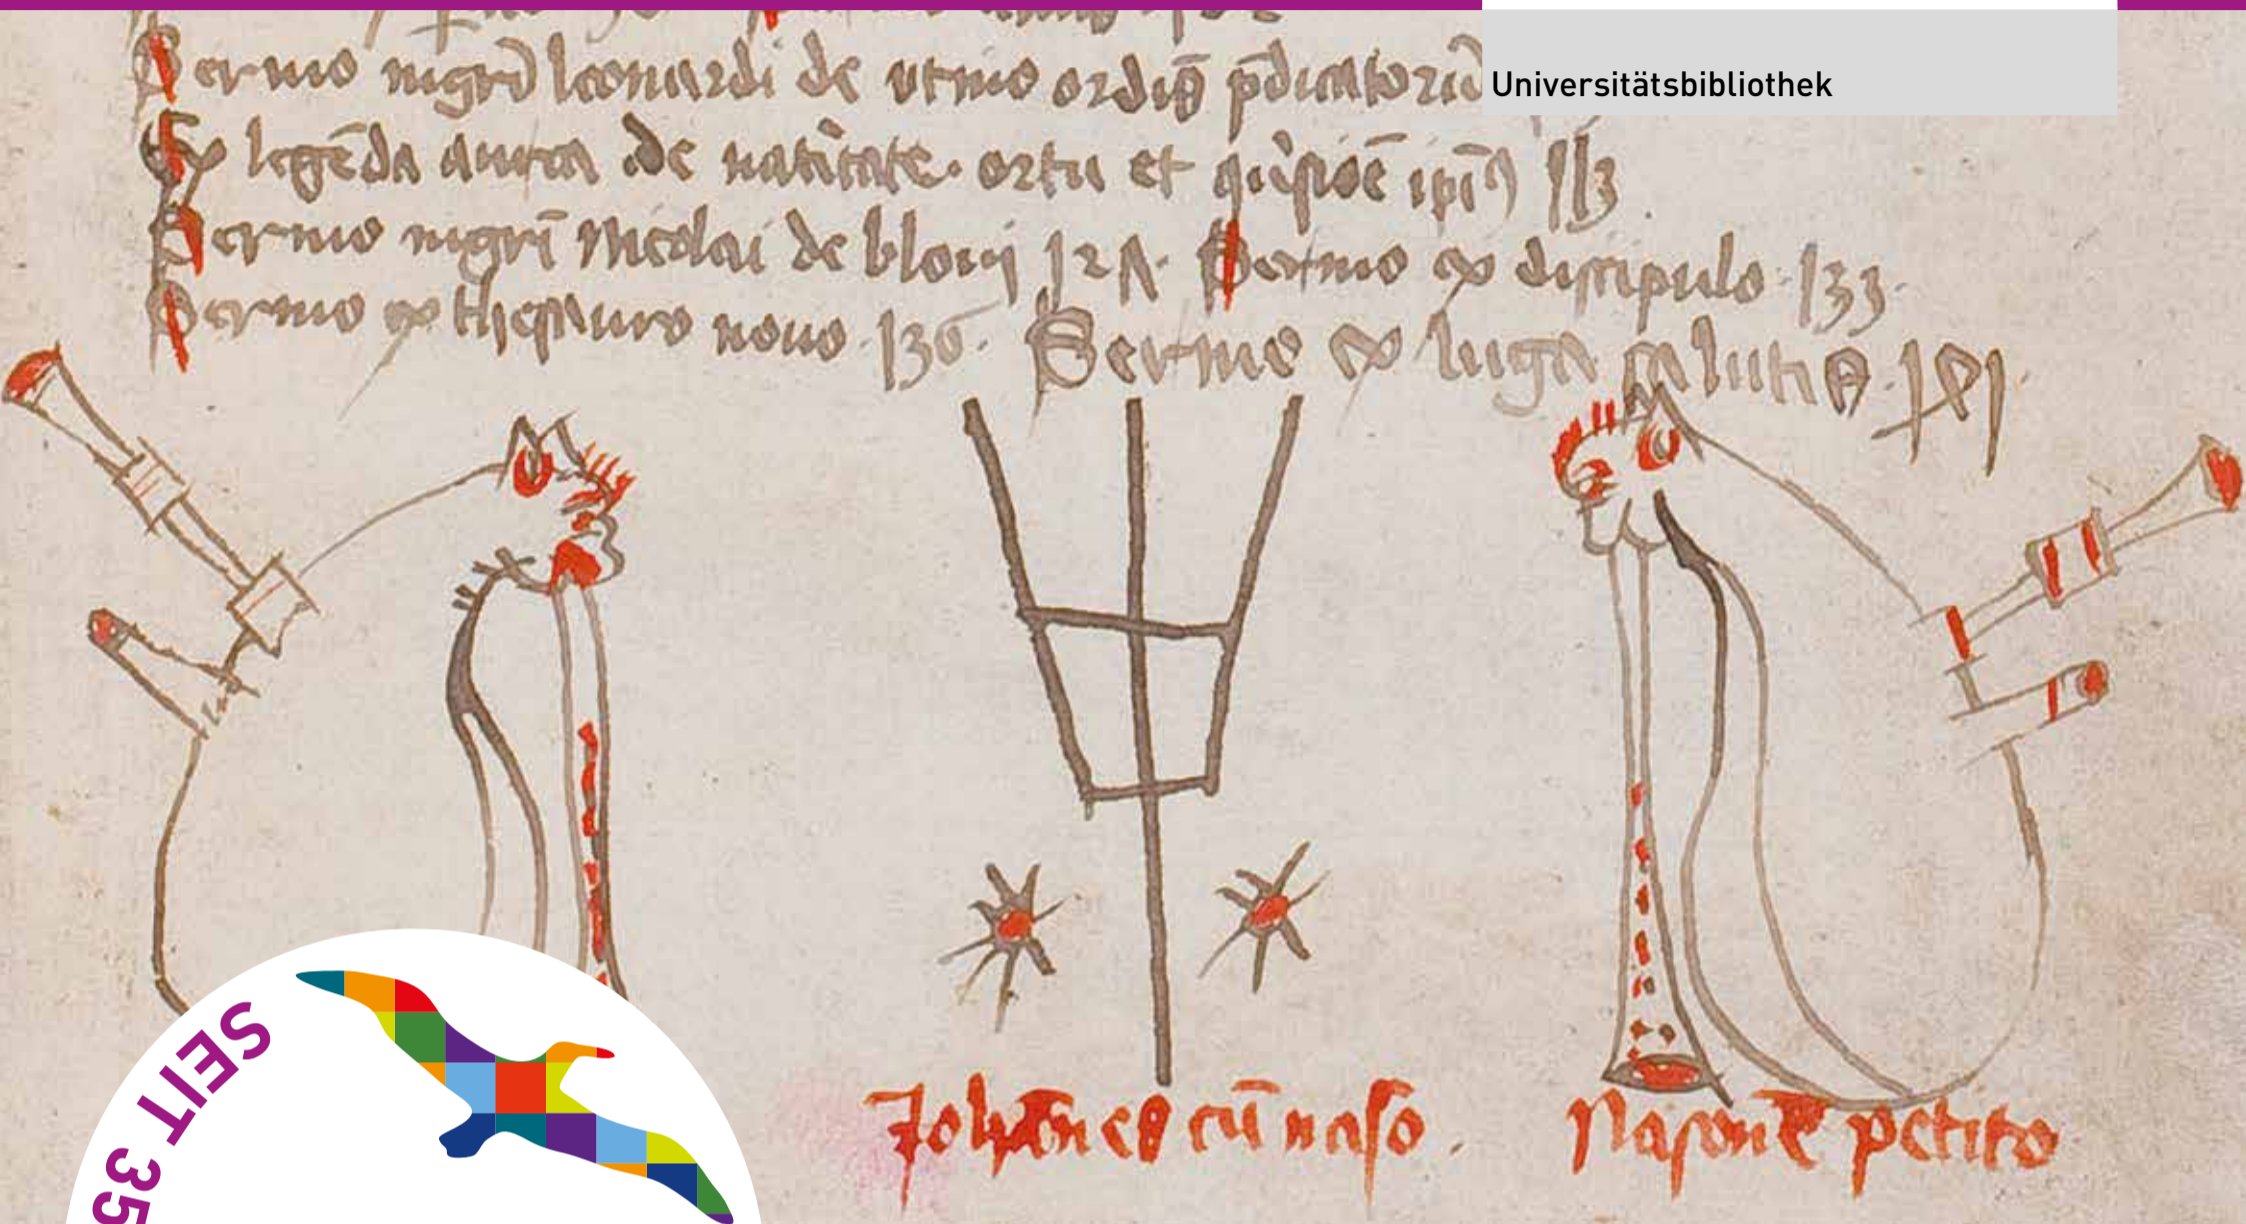 Universitätsbibliothek
Sermo mgrī leonardi de utino ordīs p̄dicatorū
Ex legēda aurea de natiuitate. ortu et 113
Sermo mgrī Nicolai de blonij 124. Sermo ex discipulo. 133.
Sermo ex thesauro nouo. 136. Sermo ex salutis. 141
Johānes cū naso.
Nasone petito
SEIT 35